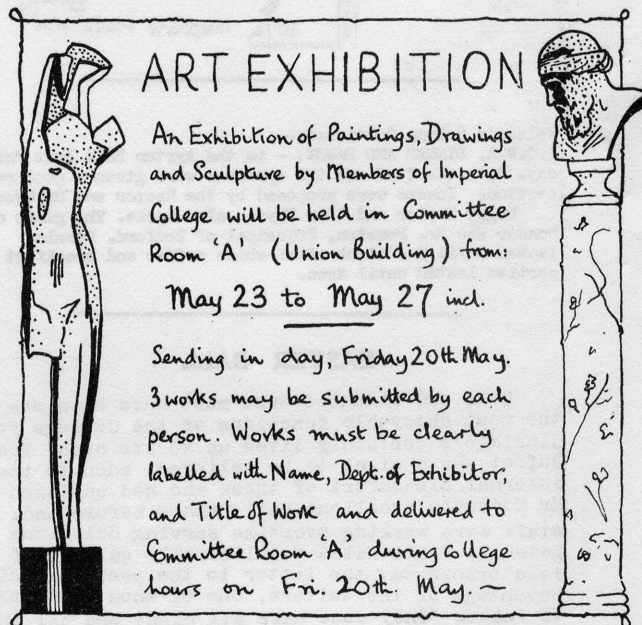 ART EXHIBITION
An Exhibition of Paintings, Drawings
and Sculpture by Members of Imperial
College will be held in Committee
Room 'A' (Union Building) from:
May 23 to May 27 incl.
Sending in day, Friday 20th May.
3 works may be submitted by each
person. Works must be clearly
labelled with Name, Dept. of Exhibitor,
and Title of Work and delivered to
Committee Room 'A' during College
hours on Fri. 20th. May.